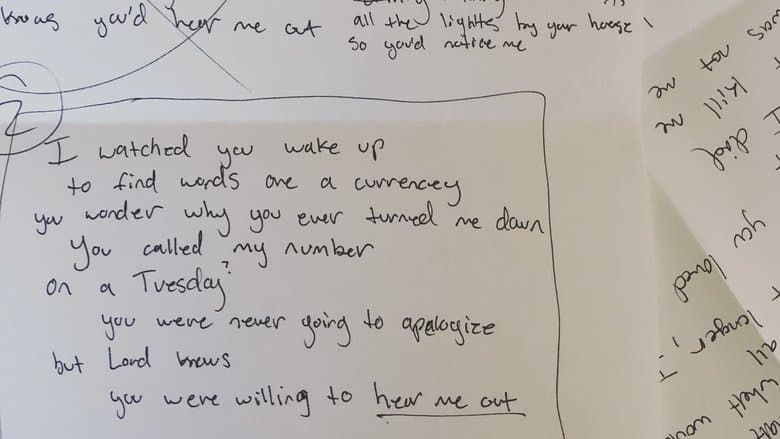 knows you'd hear me out
all the lights by your house
so you'd notice me
2
I watched you wake up
to find words are a currencey
you wonder why you ever turned me down
You called my number
on a Tuesday?
you were never going to apologize
but Lord knows
you were willing to hear me out
was not me
kill me
I died
you
loved
longer, I
all
what
would